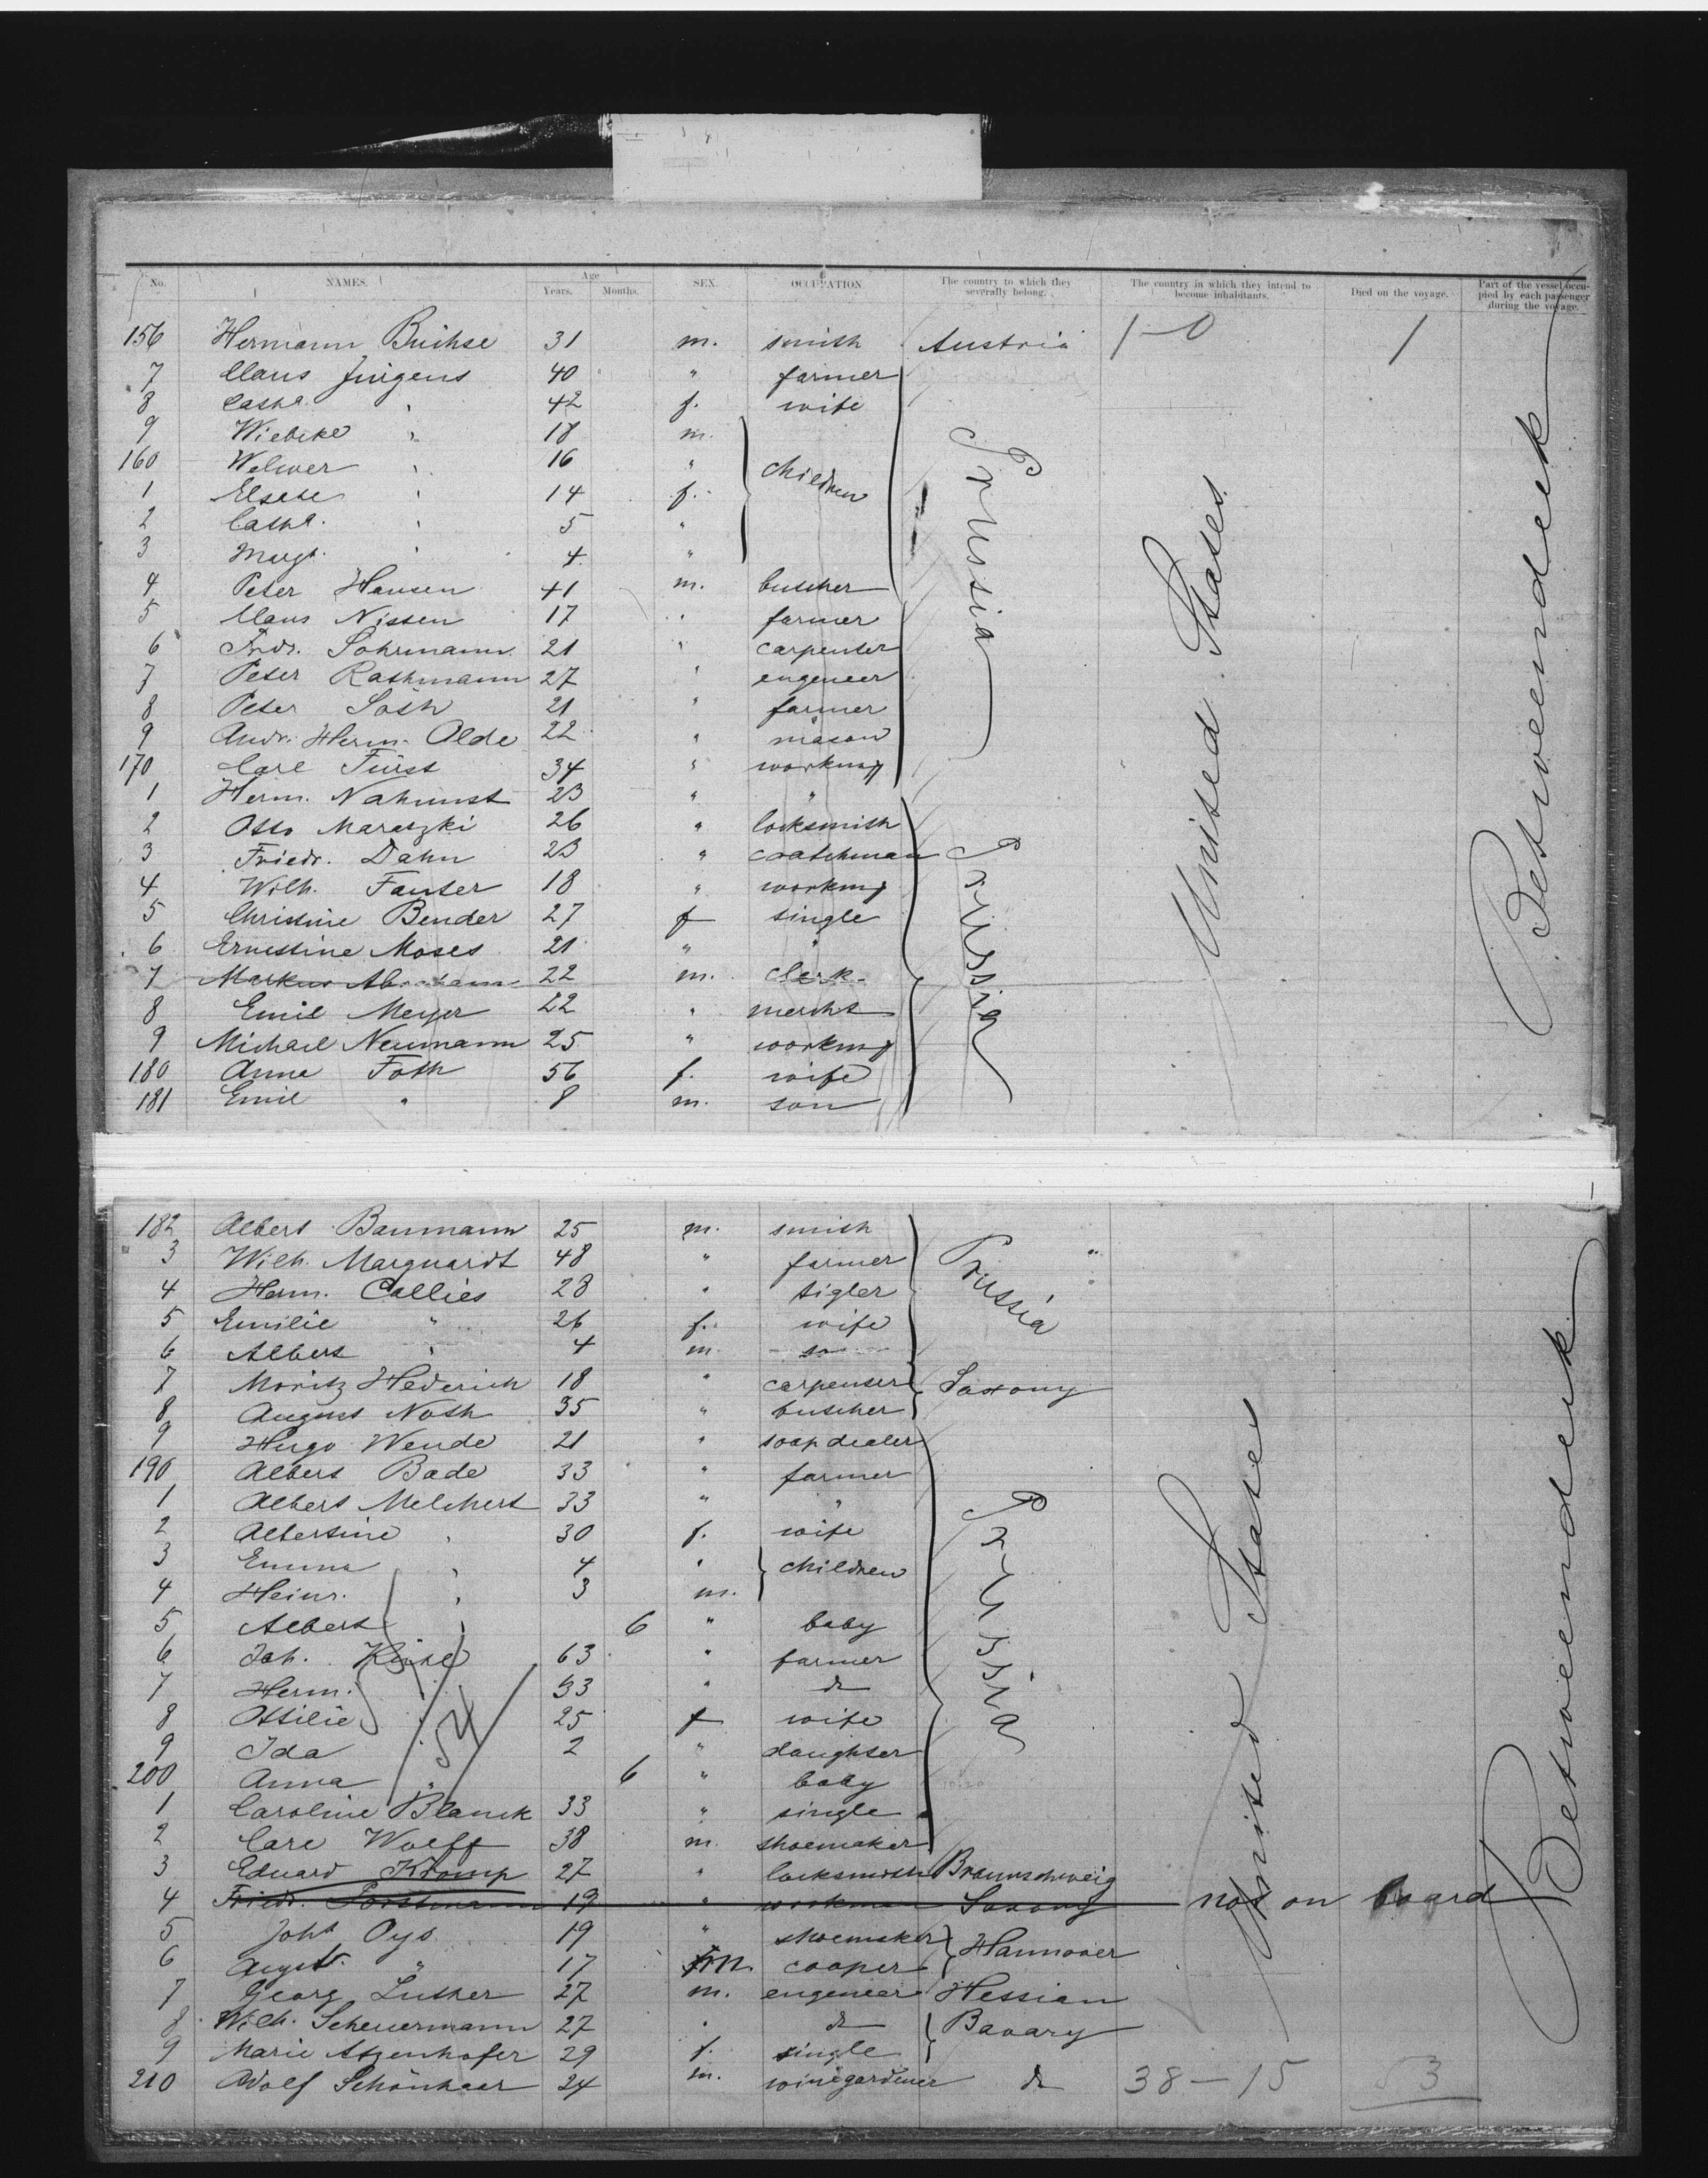 No. NAMES. Age Years. Months. SEX. OCCUPATION. The country to which they severally belong. The country in which they intend to become inhabitants. Died on the voyage. Part of the vessel occupied by each passenger during the voyage.
156 Hermann Büchse 31 m. smith Austria 1-0 1
7 Claus Jürgens 40 " farmer
8 Catha. " 42 f. wife
9 Wiebeke " 18 m.
160 Wolmer " 16 " children
1 Elsabe " 14 f.
2 Catha. " 5 "
3 Margt. " 4 "
Prussia
4 Peter Hansen 41 m. butcher
5 Claus Nissen 17 " farmer
6 Fridr. Lohrmann 21 " carpenter
7 Peter Rathmann 27 " engeneer
8 Peter Loth 21 " farmer
9 Andr. Herm. Alde 22 " mason
170 Carl Fürst 34 " working
1 Herm. Nahmst 23 " "
2 Otto Maratzki 26 " locksmith
3 Friedr. Dahn 23 " coatchman
4 Wilh. Fanter 18 " working
5 Christine Bender 27 f single
6 Ernestine Moses 21 " "
7 Markus Abraham 22 m. clerk
8 Emil Meyer 22 " mercht
9 Michael Neumann 25 " working
180 Anna Foth 56 f. wife
181 Emil " 8 m. son
Prussia
United States
Betweendeck
182 Albert Baumann 25 m. smith
3 Wilh. Marquardt 48 " farmer
4 Herm. Callies 28 " tigler Prussia
5 Emilie " 26 f. wife
6 Albert " 4 m. son
7 Moritz Hederich 18 " carpenter Saxony
8 August Noth 35 " butcher
9 Hugo Wende 21 " soap dealer
190 Albert Bade 33 " farmer
1 Albert Melchert 33 " "
2 Albertine " 30 f. wife
3 Emma " 4 " children
4 Heinr. " 3 m.
5 Albert " 6 " baby
6 Joh. Krüse 63 " farmer
7 Herm. 33 " do
8 Ottilie 25 f wife
9 Ida 2 " daughter
200 Anna " 6 " baby
54
1 Caroline Blanck 33 " single
2 Carl Wolff 38 m. shoemaker
Prussia
3 Eduard Kromp 27 " locksmith Braunschweig
4 Friedr. Forstmann 19 " workman Saxony not on board
5 Joh. Oys 19 " shoemaker Hannover
6 August. " 17 m. cooper
7 Georg Luther 27 m. engeneer Hessian
8 Wilh. Scheuermann 27 " do Bavary
9 Marie Atzenhofer 29 f. single
210 Adolf Schönhaar 24 m. winegardener do 38-15 53
United States
Betweendeck